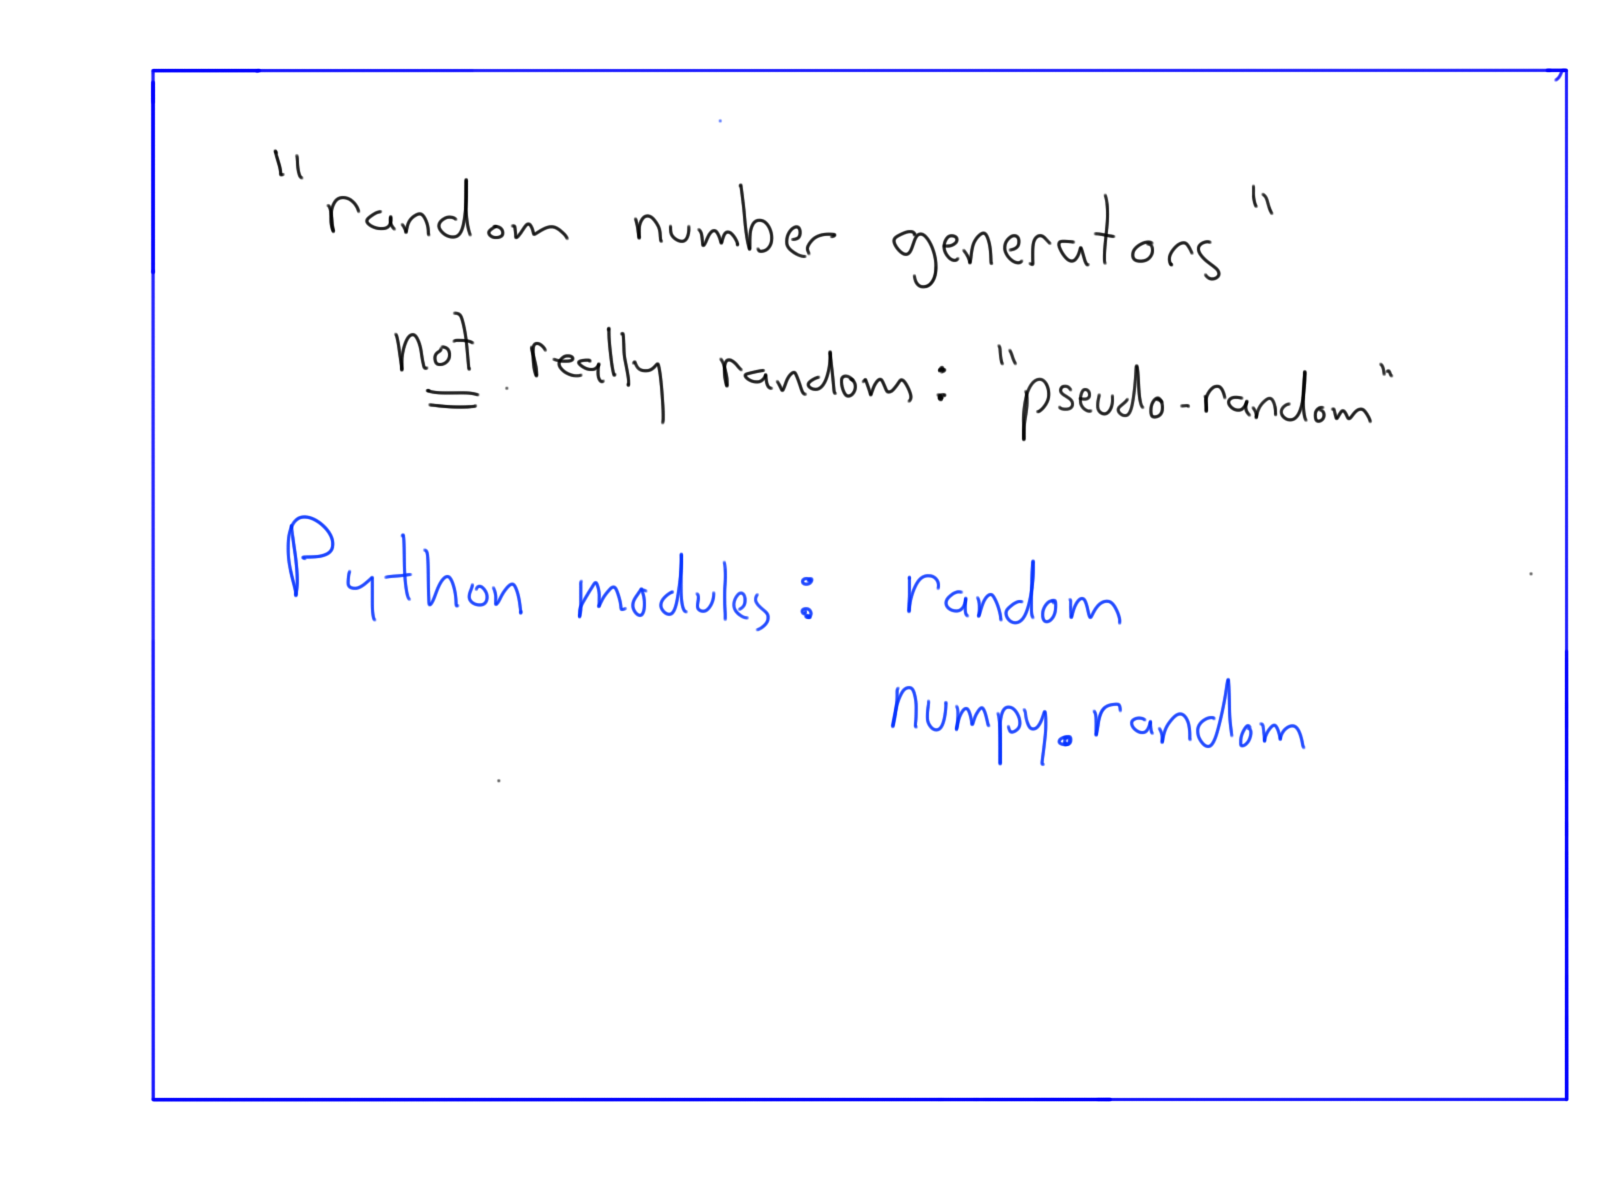 "random number generators"
not really random: "pseudo-random"
Python modules: random
numpy.random